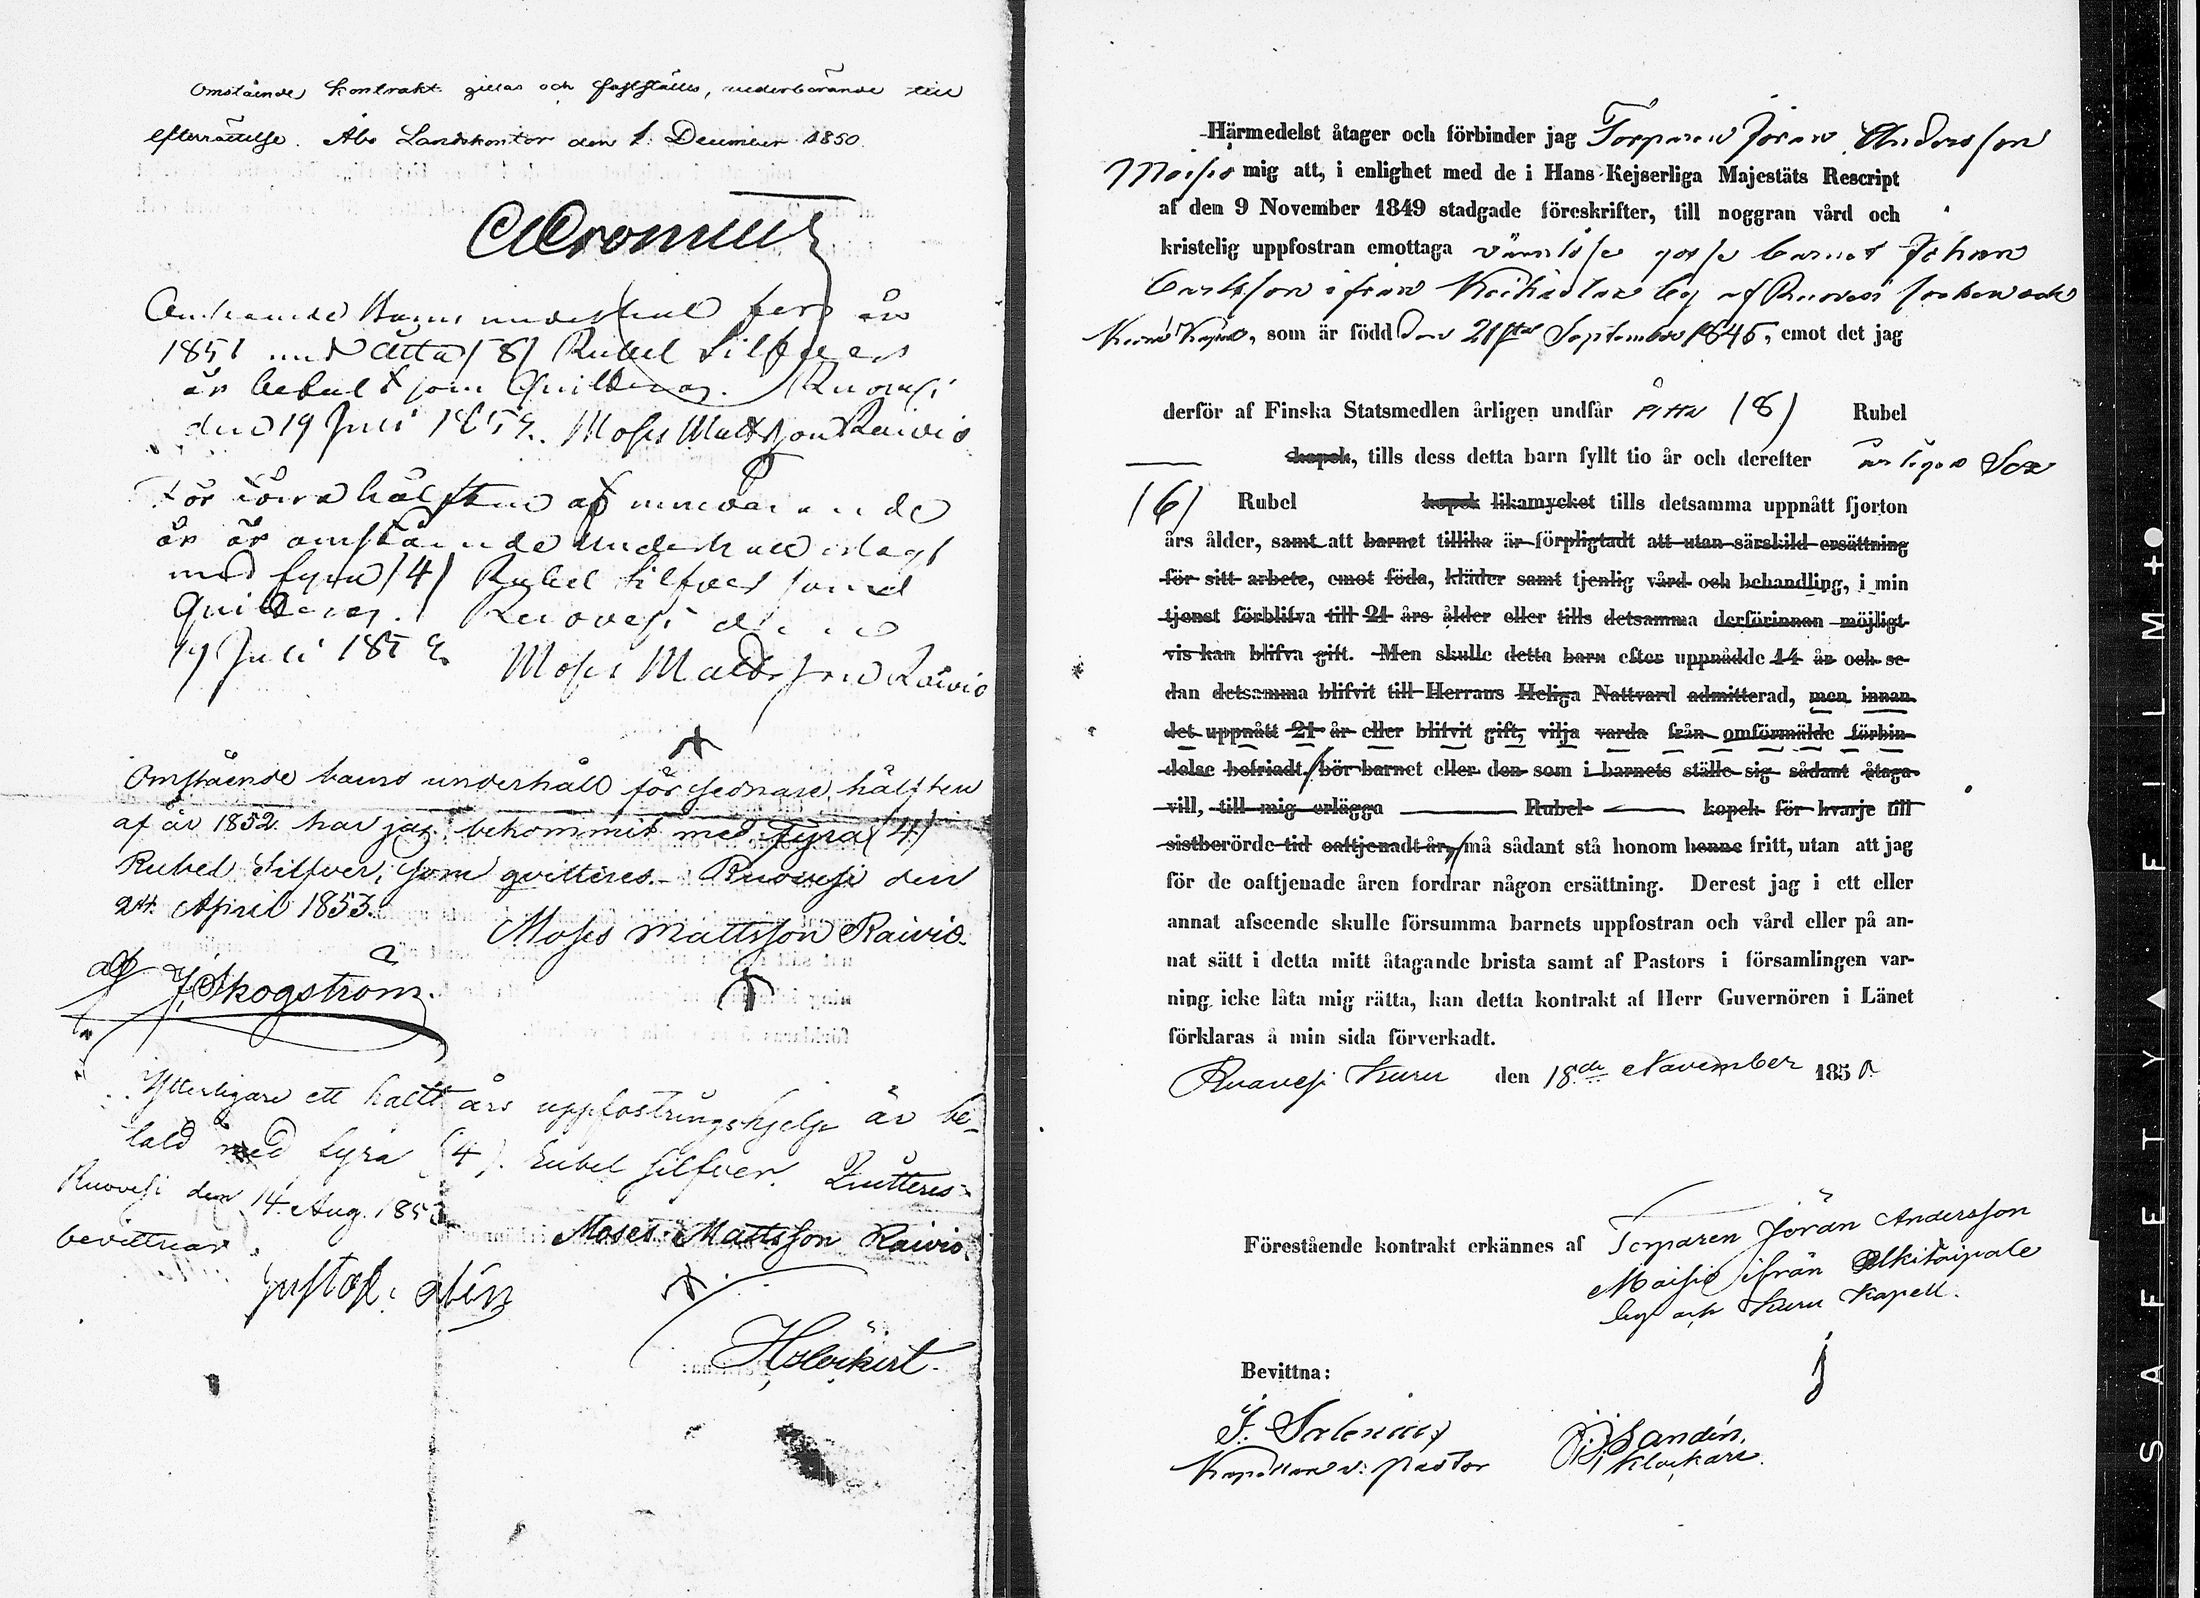 Omstående Kontrakt gillas och fastställes, vederbörande till
efterrättelse. Åbo Landskontor den 1 December 1850.
CCronius
underhåll för år
1851 med Åtta (8) Rubel Silfver
är betalt som Quitteras. Ruovesi
den 19 Juli 1852. Moses Mattsson Raivio
För förra hälften af innevarande
år är omstående underhåll erlagt
med fyra (4) Rubel Silfver som
Quitteras. Ruovesi den
19 Juli 1852. Moses Mattsson Raivio
Omstående barns underhåll för sednare hälften
af år 1852 har jag bekommit med Fyra (4)
Rubel Silfver, som qvitteres. Ruovesi den
24 April 1853.
Moses Mattsson Raivio.
af J. Skogström.
Ytterligare ett halft års uppfostringshjelp är be-
tald med fyra (4) Rubel silfver. Quitteres
Ruovesi den 14 Aug. 1853
Moses Mattsson Raivio
bevittnar
Gustaf
H. Höckert.
Härmedelst åtager och förbinder jag Torparen Jöran Andersson
Moisio mig att, i enlighet med de i Hans Kejserliga Majestäts Rescript
af den 9 November 1849 stadgade föreskrifter, till noggran vård och
kristelig uppfostran emottaga värnlöse gosse barnet Johan
Carlsson ifrån by af Ruovesi socken och
Kapell, som är född den 21sta September 1845, emot det jag
derför af Finska Statsmedlen årligen undfår Åtta (8) Rubel
kopek, tills dess detta barn fyllt tio år och derefter årligen Sex
(6) Rubel kopek likamycket tills detsamma uppnått fjorton
års ålder, samt att barnet tillika är förpligtadt att utan särskild ersättning
för sitt arbete, emot föda, kläder samt tjenlig vård och behandling, i min
tjenst förblifva till 21 års ålder eller tills detsamma derförinnan möjligt-
vis kan blifva gift. Men skulle detta barn efter uppnådde 14 år och se-
dan detsamma blifvit till Herrans Heliga Nattvard admitterad, men innan
det uppnått 21 år eller blifvit gift, vilja varda från omförmälde förbin-
delse befriadt, bör barnet eller den som i barnets ställe sig sådant åtaga
vill, till mig erlägga Rubel kopek för hvarje till
sistberörde tid oaftjenadt år, må sådant stå honom henne fritt, utan att jag
för de oaftjenade åren fordrar någon ersättning. Derest jag i ett eller
annat afseende skulle försumma barnets uppfostran och vård eller på an-
nat sätt i detta mitt åtagande brista samt af Pastors i församlingen var-
ning icke låta mig rätta, kan detta kontrakt af Herr Guvernören i Länet
förklaras å min sida förverkadt.
Ruovesi Kuru den 18de November 1850
Förestående kontrakt erkännes af Torparen Jöran Andersson
Moisio ifrån Olkitaipale
by och Kuru Kapell.
Bevittna:
J. Salenius
Kapellan v. pastor
Sandén.
Klockare.
SAFETY FILM